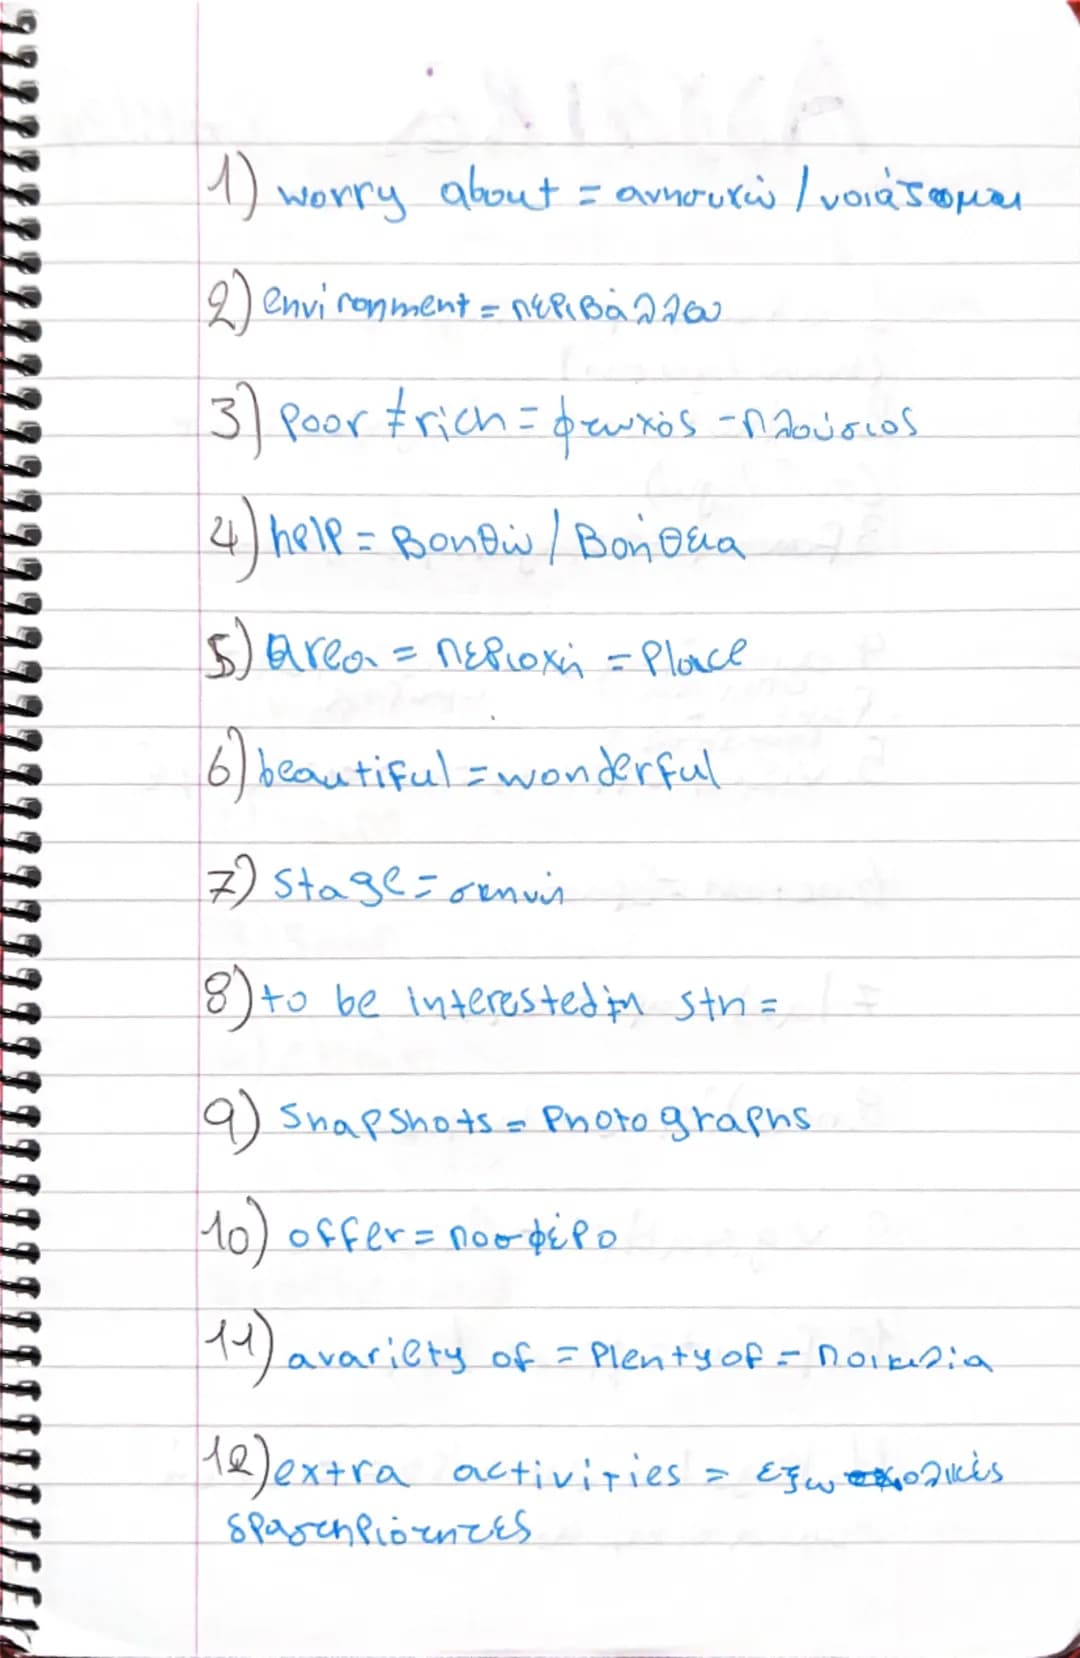 1) worry about = ανησυχώ / νοιάζομαι
2) environment = περιβάλλω
3) poor ≠ rich = φτωχός - πλούσιος
4) help = Βοηθώ / Βοήθεια
5) area = περιοχή = Place
6) beautiful = wonderful
7) stage = σκηνή
8) to be interested in sth =
9) Snapshots = Photographs
10) offer = ποσφέρο
11) avariety of = Plenty of = ποικιλία
12) extra activities = εξωσχολικές
δραστηριότητες